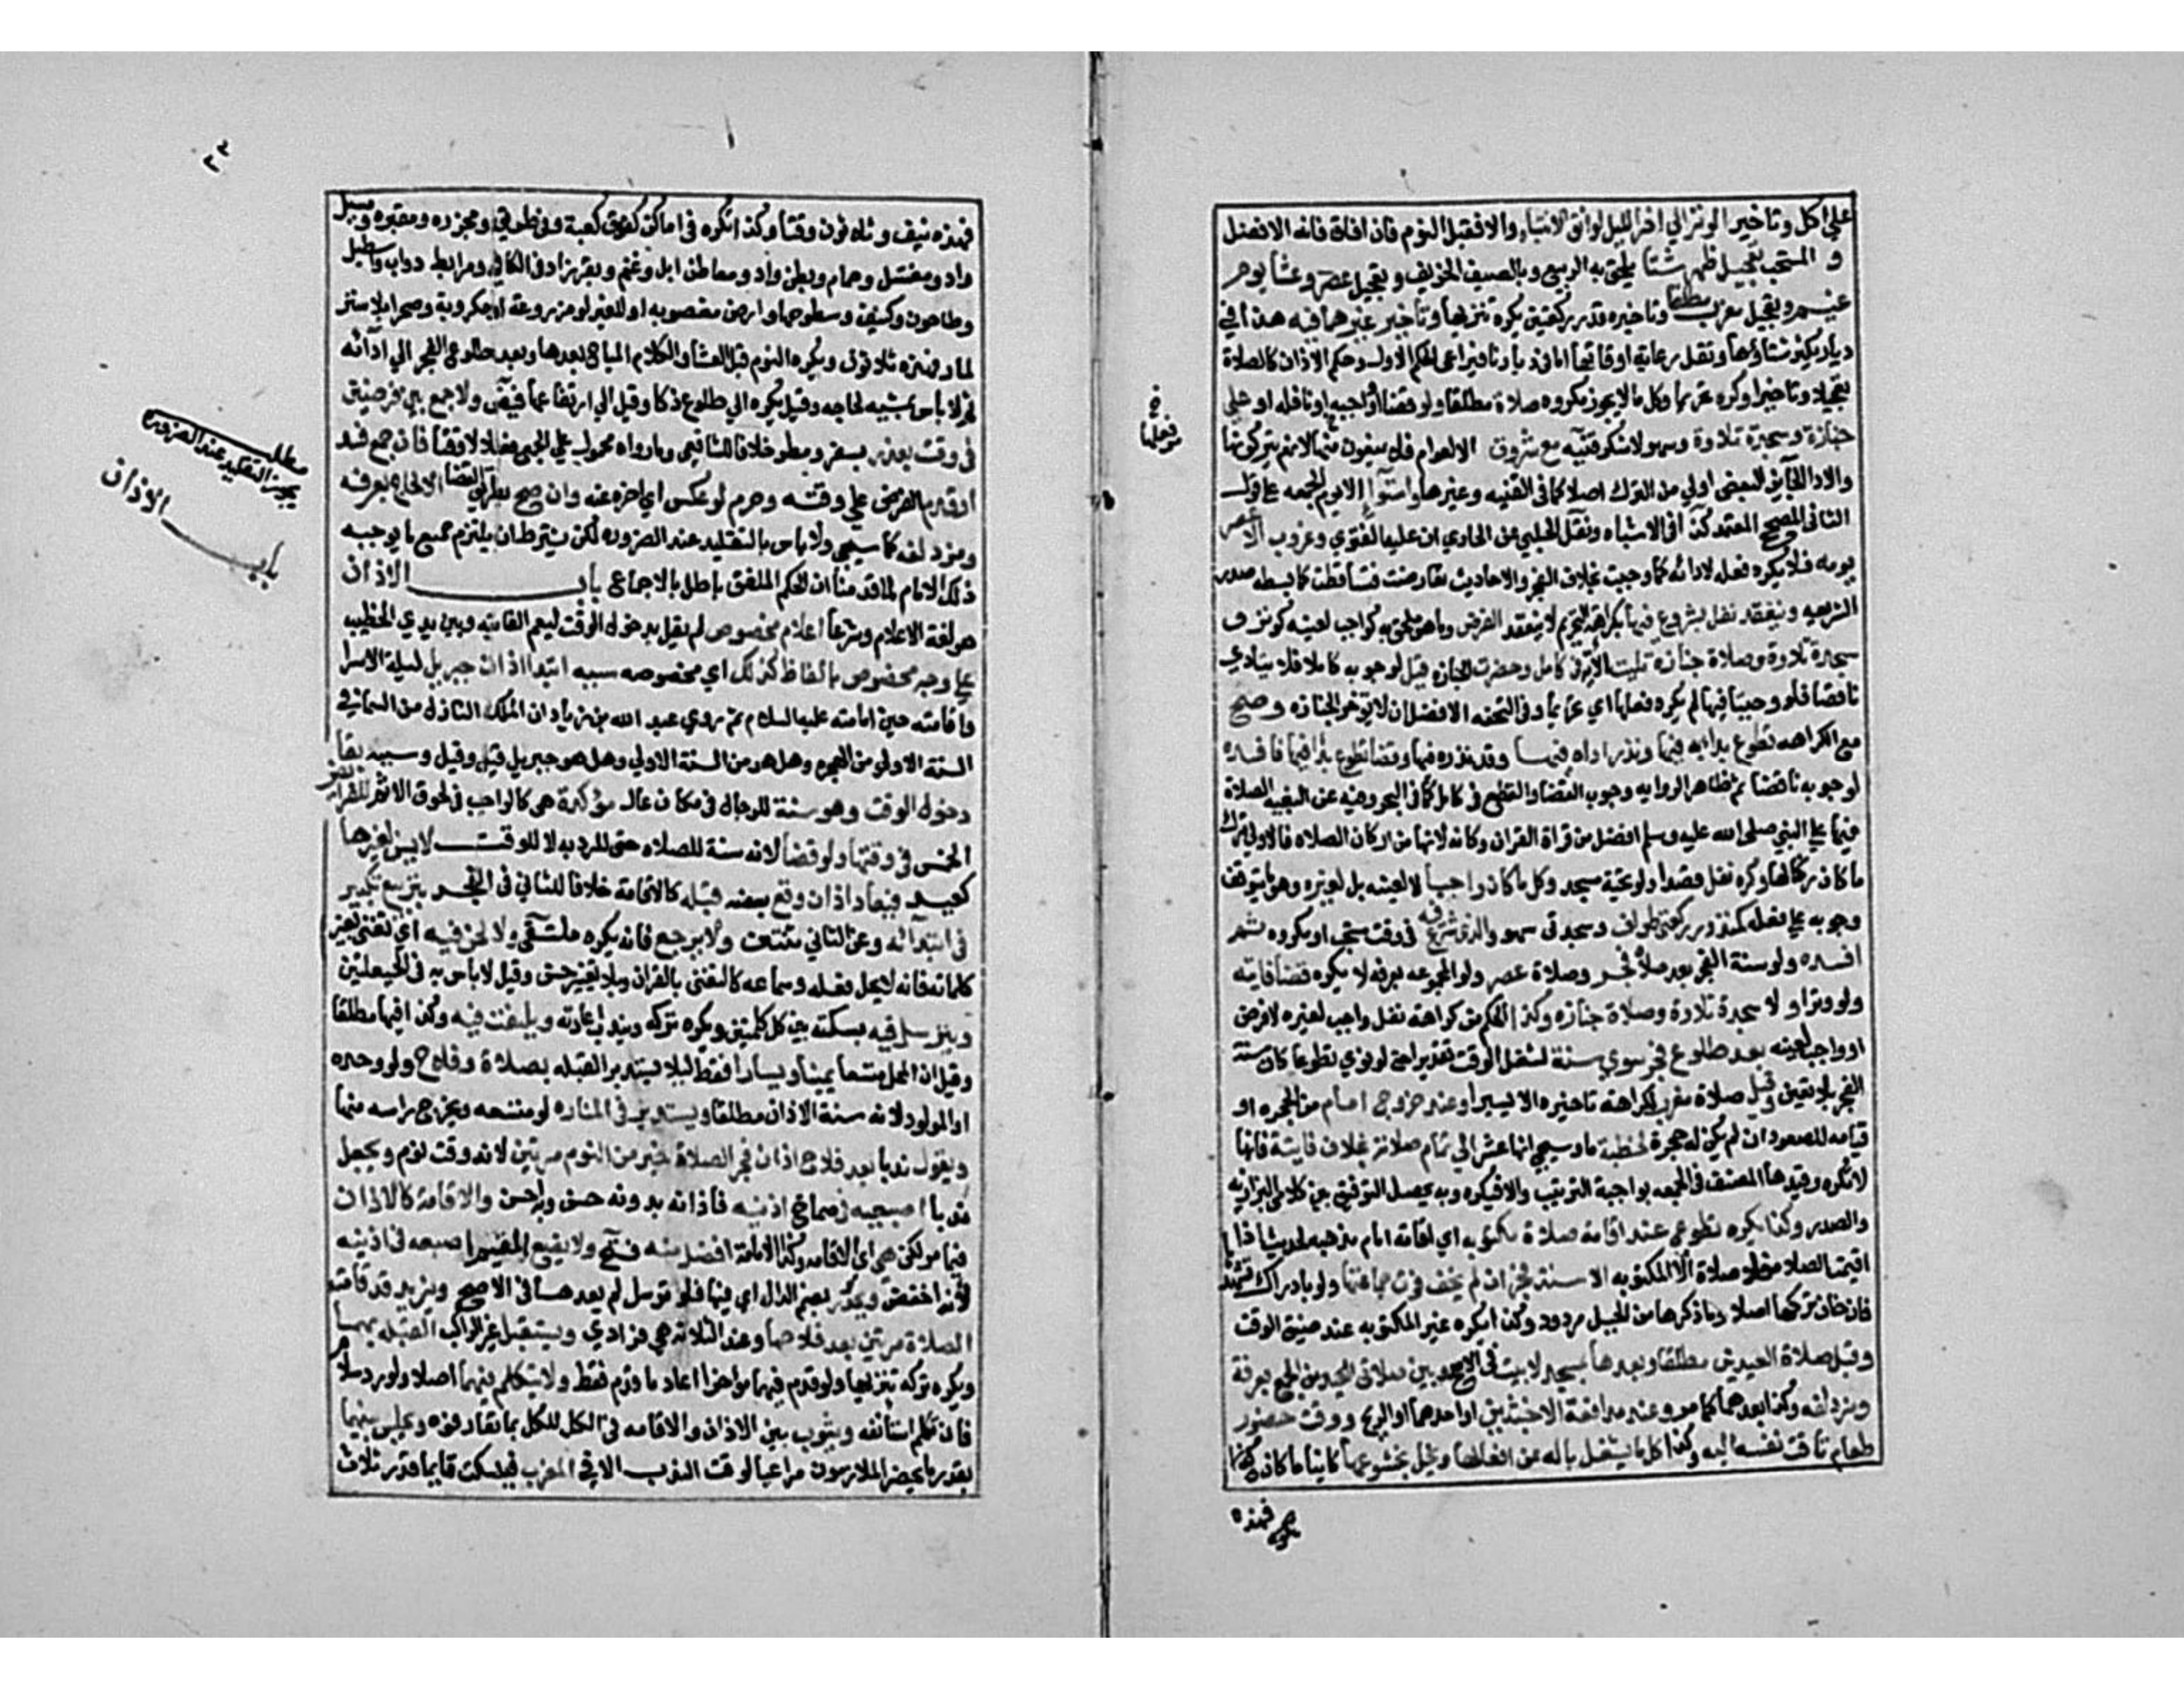 علي اكل وتاخير الوتر الي اخر الليل لواثق بالانتباه والا فقبل النوم فان افاق فاته الافضل
و المستحب تعجيل ظهر شتا يلحق به الربيع وبالصيف الخريف وتعجيل عصر وعشا يوم
غيم وتعجيل مغرب مطلقا وتاخيره قدر ركعتين يكره تنزيها وتاخير غيرهما فيه هذا في
ديار يكثر شتاؤها وتقل رعاية اوقاتها اما في ديارنا فيراعي الحكم الاول وحكم الاذان كالصلاة
تعجيلا وتاخيرا وكره تحريما وكل ما لا يجوز مكروه صلاة مطلقا ولو قضا او واجبة او نافلة او علي
جنازة وسجدة تلاوة وسهو لا شكر قنيه مع شروق الا العوام فلا يمنعون منها لانهم يتركونها
والادا الجايز عند البعض اولي من الترك اصلا كما في القنيه وغيرها واستوا الا يوم الجمعه علي قول
الثاني المصحح المعتمد كذا في الاشباه ونقل الحلبي عن الحاوي ان عليه الفتوي وغروب الا عصر
يومه فلا يكره فعله لادائه كما وجبت بخلاف الفجر والاحاديث تعارضت فتساقطت كما بسطه صدر
الشريعه وينعقد نفل بشروع فيها بكراهة التحريم لا ينعقد الفرض وما هو ملحق به كواجب لعينه كوتر و
سجدة تلاوة وصلاة جنازة تليت الاية في كامل وحضرت الجنازه قبل لوجوبه كاملا فلا يتادي
ناقصا فلو وجبتا فيها لم يكره فعلهما اي تحريما وفي التحفه الافضل ان لا توخر الجنازه وصح
مع الكراهه تطوع بدا به فيها ونذر اداه فيها وقد نذره فيها وقضا تطوع بدا فيها فافسده
لوجوبه ناقصا ثم ظاهر الروايه وجوب القضا والقطع في كامل كما في البحر وفيه عن البغيه الصلاة
فيها علي النبي صلي الله عليه وسلم افضل من قراة القران وكانه لانها من اركان الصلاه فالاولي ترك
ما كان ركنا لها وكره نفل قصدا ولو تحية مسجد وكل ما كان واجبا لا لعينه بل لغيره وهو ما يتوقف
وجوبه علي فعله كمنذور وركعتي طواف وسجدتي سهو والذي شرع فيه في وقت مستحب او مكروه ثم
افسده ولو سنة الفجر بعد صلاة فجر وصلاة عصر ولو المجموعه بعرفه لا يكره قضا فايته
ولو وترا او لا سجدة تلاوة وصلاة جنازه وكذا الحكم من كراهة نفل واجب لغيره لا فرض
او واجب لعينه بعد طلوع فجر سوي سنة لشغل الوقت تقديرا حتي لو نوي تطوعا كان سنة
الفجر بلا تعيين وقبل صلاة مغرب لكراهة تاخيره الا يسيرا وعند خروج امام من الحجره او
قيامه للصعود ان لم يكن له حجرة لخطبة ما وسيجي انها عشر الي تمام صلاته بخلاف فايتة فانها
لا تكره وقيدها المصنف في الجمعه بواجبة الترتيب والا فيكره وبه يحصل التوفيق بين كلامي النهايه
والصدر وكذا يكره تطوع عند اقامة صلاة مكتوبه اي اقامة امام مذهبه لحديث اذا
اقيمت الصلاه فلا صلاة الا المكتوبه الا سنة فجر ان لم يخف فوت جماعتها ولو بادراك تشهدها
فان خاف تركها اصلا وما ذكرها من الحيل مردود وكذا يكره غير المكتوبه عند ضيق الوقت
وقبل صلاة العيدين مطلقا وبعدها بمسجد لا بيت في الاصح وبين صلاتي الجمع بعرفة
ومزدلفه وكذا بعدهما كما مر وعند مدافعة الاخبثين او احدهما او الريح ووقت حضور
طعام تاقت نفسه اليه وكذا كل ما يشغل باله عن افعالها ويخل بخشوعها كاينا ما كان
فهذه
فهذه نيف وثلاثون وقتا وكذا تكره في اماكن كفوق كعبة وفي طريق ومجزره ومقبره ومسيل
واد ومغتسل وحمام وبطن واد ومعاطن ابل وغنم وبقر زاد في الكافي ومرابط دواب واسطبل
وطاحون وكنيف وسطوحها وارض مغصوبه او للغير لو مزروعة او مكروبة وصحرا بلا سترة
لمار فهذه ثلاثون ويكره النوم قبل العشا والكلام المباح بعدها وبعد طلوع الفجر الي ادائه
ثم لا باس بمشيه لحاجه وقيل يكره الي طلوع ذكا وقيل الي ارتفاعها فيض ولا جمع بين فرضين
في وقت بعذر سفر ومطر خلافا للشافعي وما رواه محمول علي الجمع فعلا لا وقتا فان جمع فسد
لو قدم الفرض علي وقته وحرم لو عكس اي اخره عنه وان صح بطريق القضا الا لحاج بعرفه
ومزدلفه كما سيجي ولا باس بالتقليد عند الضروره لكن يشترط ان يلتزم جميع ما يوجبه
ذلك الامام لما قدمنا ان الحكم الملفق باطل بالاجماع باب الاذان
هو لغة الاعلام وشرعا اعلام مخصوص لم يقل بدخول الوقت ليعم الفايته وبين يدي الخطيب
علي وجه مخصوص بالفاظ كذلك اي مخصوصه سببه ابتدا اذان جبريل ليلة الاسرا
واقامته حين امامته عليه السلام ثم روي عبد الله بن زيد اذان الملك النازل من السما في
السنة الاولي من الهجره وهل هو من السنة الاولي وهل هو جبريل قيل وقيل وسببه بقا
دخول الوقت وهو سنة للرجال في مكان عال مؤكدة هي كالواجب في لحوق الاثم للفرايض
الخمس في وقتها ولو قضا لانه سنة للصلاه حتي يبرد به لا للوقت لا يسن لغيرها
كعيد فيعاد اذان وقع بعضه قبله كالاقامة خلافا للثاني في الفجر بتربيع تكبير
في ابتدائه وعن الثاني بتثنيته ولا ترجيع فانه يكره ملتقي ولا لحن فيه اي تغني بغير
كلماته فانه لا يحل فعله وسماعه كالتغني بالقران وبلا تغيير حسن وقيل لا باس به في الحيعلتين
ويترسل فيه بسكته بين كل كلمتين ويكره تركه وتندب اعادته ويلتفت فيه وكذا فيها مطلقا
وقيل ان المحل متسعا يمينا ويسارا فقط لئلا يستدبر القبله بصلاة وفلاح ولو وحده
او لمولود لانه سنة الاذان مطلقا ويستدير في المناره لو متسعه ويخرج راسه منها
ويقول ندبا بعد فلاح اذان فجر الصلاة خير من النوم مرتين لانه وقت نوم ويجعل
ندبا اصبعيه في صماخ اذنيه فاذانه بدونه حسن وبه احسن والاقامة كالاذان
فيما مر لكن هي اي الاقامه وكذا الامامة افضل منه فتح ولا يضع المقيم اصبعه في اذنيه
لانه اخفض ويحدر بضم الدال اي فيها فلو ترسل لم يعدها في الاصح ويزيد قد قامت
الصلاة مرتين بعد فلاحها وعند الثلاثه هي فرادي ويستقبل غير الراكب القبله بهما
ويكره تركه تنزيها ولو قدم فيهما مؤخرا اعاد ما قدم فقط ولا يتكلم فيهما اصلا ولو رد سلام
فان تكلم استانفه ويثوب بين الاذان والاقامه في الكل للكل بما تعارفوه ويجلس بينهما
بقدر ما يحضر الملازمون مراعيا لوقت الندب الا في المغرب فيسكت قايما قدر ثلاث
مطلب
يجوز التقليد عند الضروره
باب الاذان